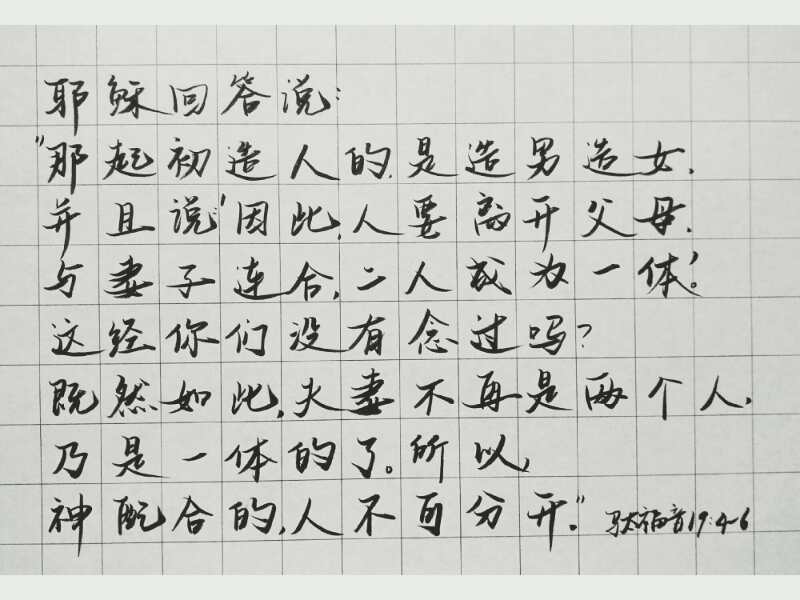 耶稣回答说:
"那起初造人的,是造男造女,
并且说:'因此,人要离开父母,
与妻子连合,二人成为一体'。
这经你们没有念过吗?
既然如此,夫妻不再是两个人,
乃是一体的了。所以,
神配合的,人不可分开。" 马太福音19:4-6